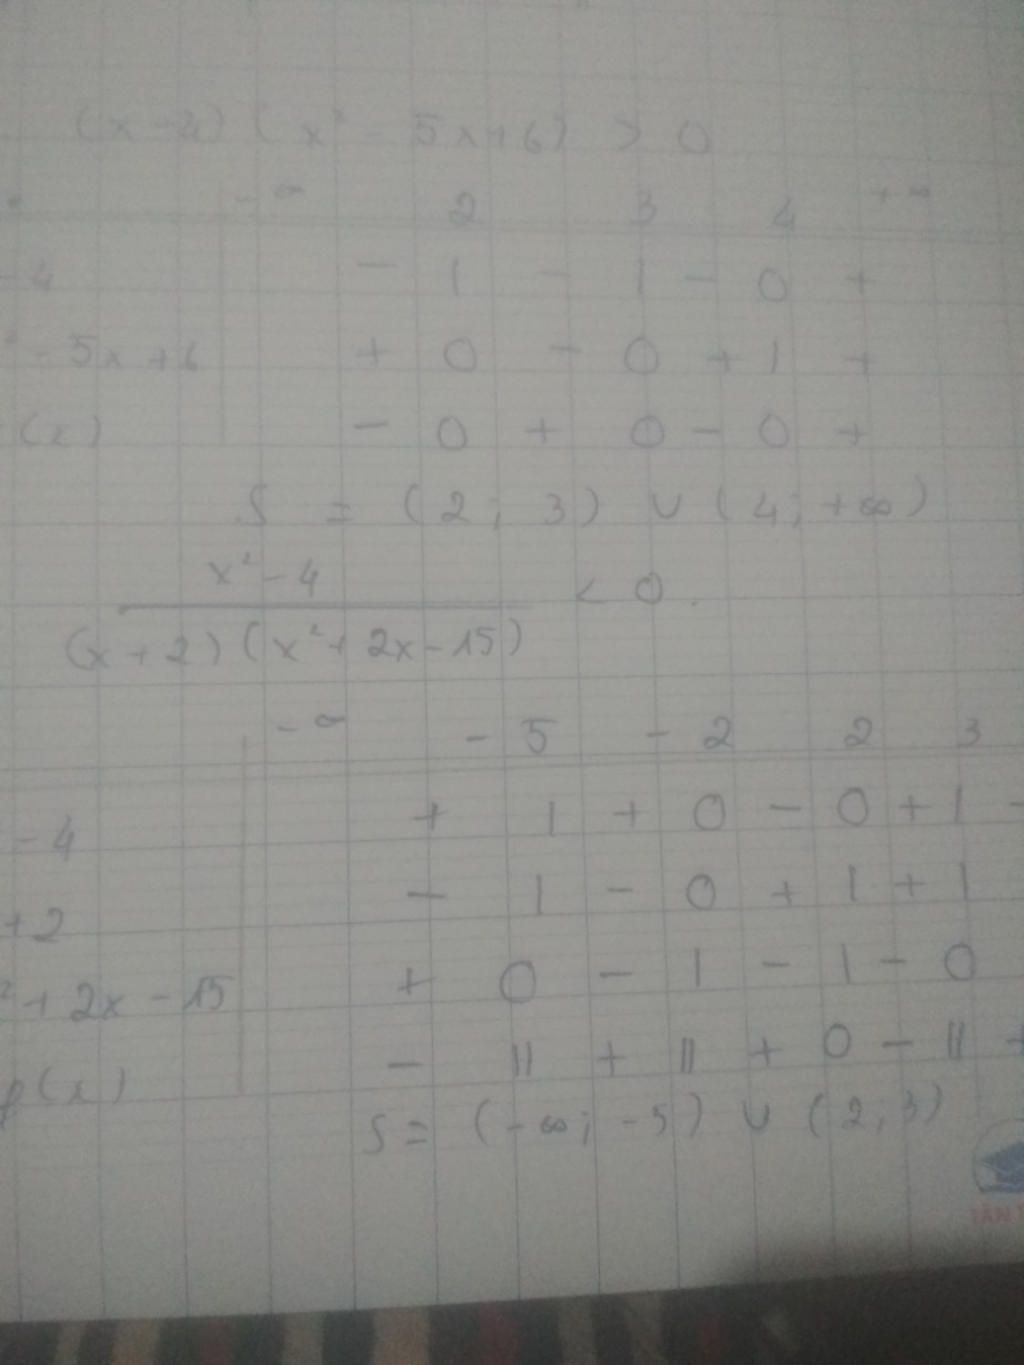 (x - 4) (x² - 5x + 6) > 0
-∞ 2 3 4 +∞
- 4 - | - | - 0 +
² - 5x + 6 + 0 - 0 + | +
(x) - 0 + 0 - 0 +
S = (2; 3) ∪ (4; +∞)
x² - 4
< 0.
(x + 2) (x² + 2x - 15)
-∞ -5 -2 2 3
- 4 + | + 0 - 0 + | -
+ 2 - | - 0 + | + |
² + 2x - 15 + 0 - | - | - 0
f(x) - || + || + 0 - || +
S = (-∞; -5) ∪ (2; 3)